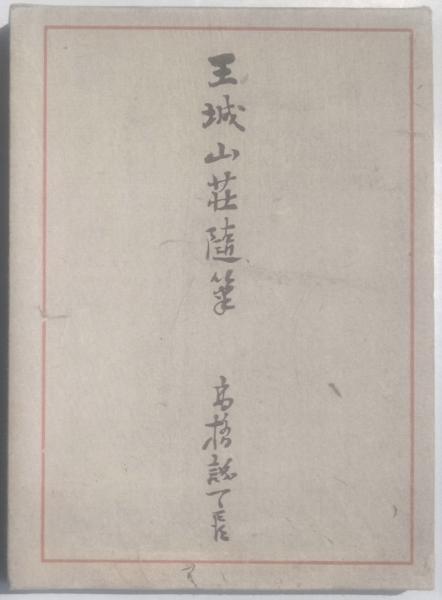 王城山荘随筆
高橋誠一郎